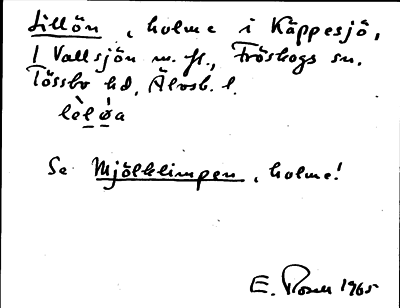 Lillön, holme i Käppesjö,
I Vallsjön m. fl., Fröskogs sn.
Tössbo hd, Älvsb. l.
lèløa
Se Mjölklimpen, holme!
E. Rosell 1965